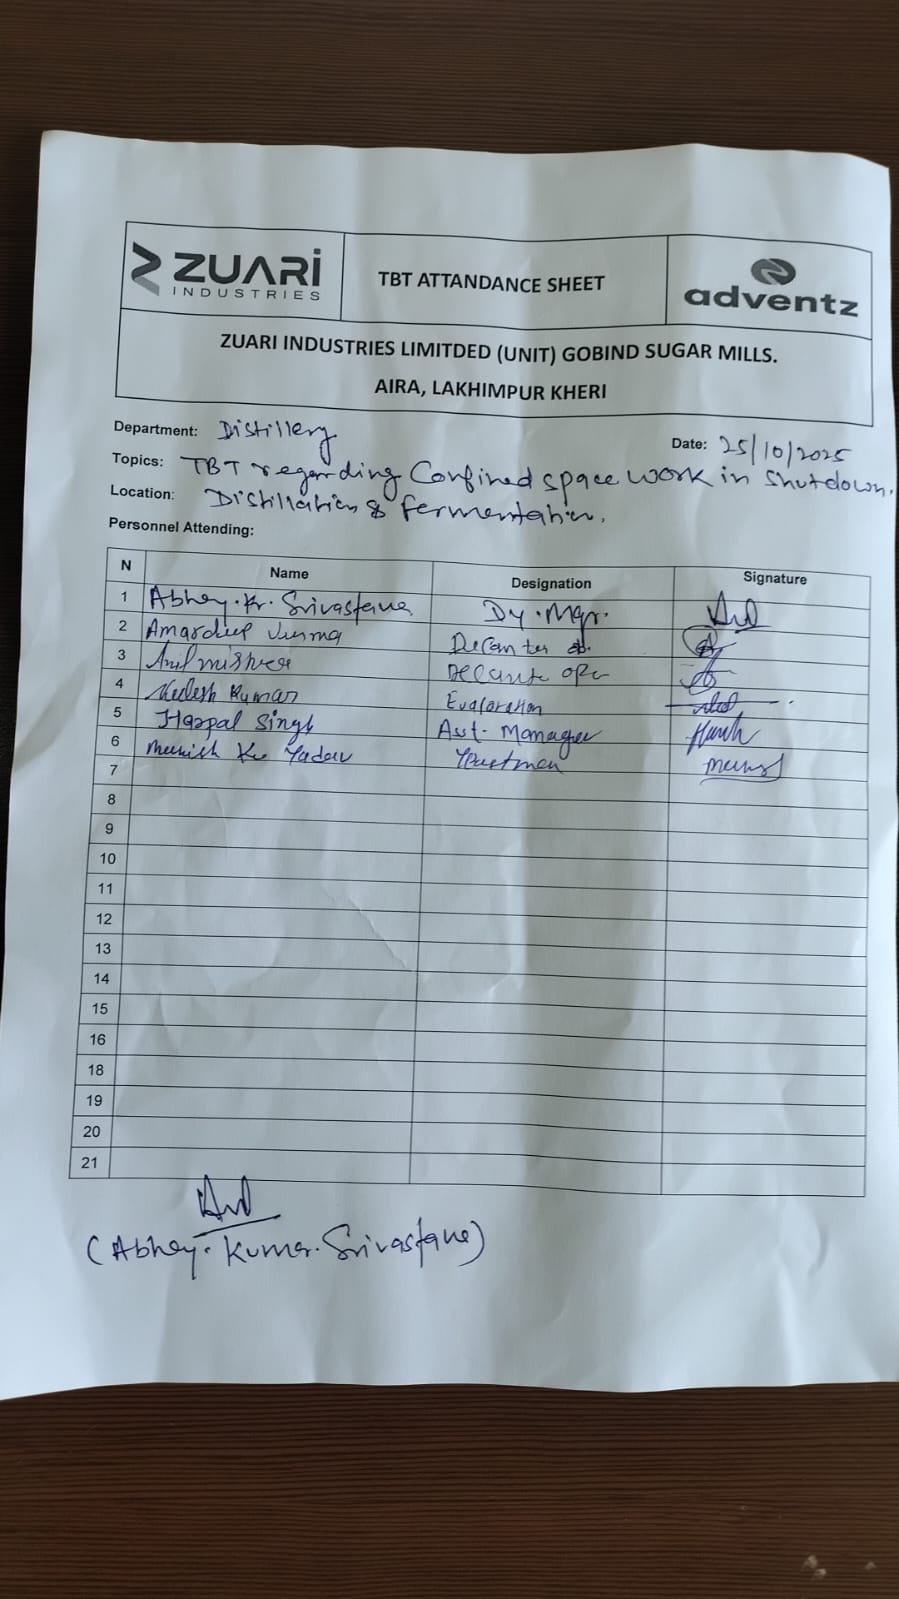 ZUARI
INDUSTRIES
TBT ATTANDANCE SHEET
adventz
ZUARI INDUSTRIES LIMITDED (UNIT) GOBIND SUGAR MILLS.
AIRA, LAKHIMPUR KHERI
Department: Distillery Date: 25/10/2025
Topics: TBT regarding Confined space work in Shutdown.
Location: Distillation & fermentation.
Personnel Attending:
N Name Designation Signature
1 Abhey. Kr. Srivastava Dy. Mgr.
2 Amardeep Verma Decanter
3 Anil mishra
4 Kumar Evaporation
5 Harpal Singh Asst. Manager
6 Munish Yadav
7
8
9
10
11
12
13
14
15
16
18
19
20
21
(Abhey. Kumar. Srivastava)